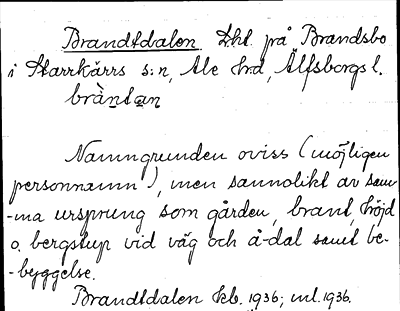 Brandtdalen Lht. på Brandsbo
i Starrkärrs s:n, Ale hrd, Älfsborgs l.
brànta̲n̲
Namngrunden oviss (möjligen
personnamn), men sannolikt av sam-
-ma ursprung som gården, brant, höjd
o. bergstup vid väg och å-dal samt be-
-byggelse.
Brandtdalen kb. 1936; ml. 1936.